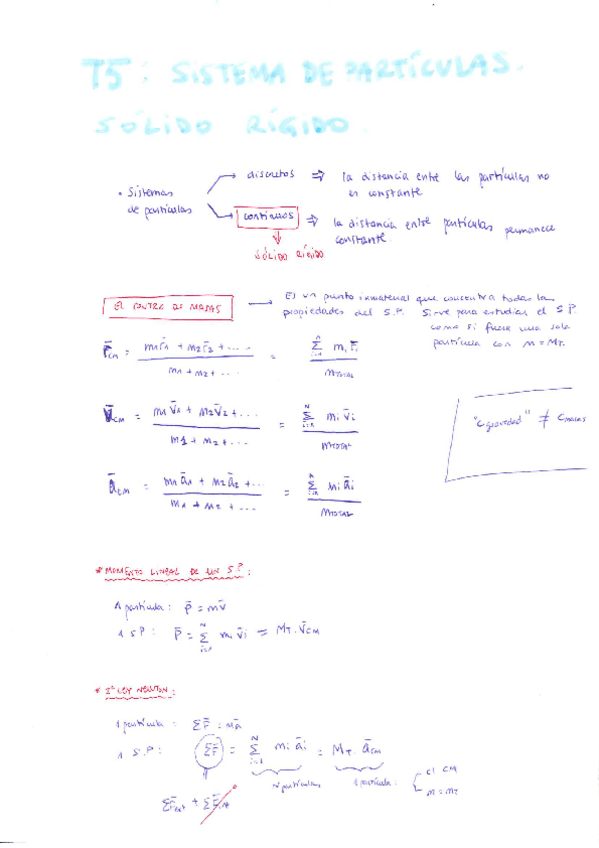 T5: SISTEMA DE PARTÍCULAS.
SÓLIDO RÍGIDO.
• Sistemas de partículas
discretos ⇒ la distancia entre las partículas no es constante
continuos ⇒ la distancia entre partículas permanece constante
↓
SÓLIDO RÍGIDO
EL CENTRO DE MASAS → Es un punto inmaterial que concentra todas las
propiedades del S.P. Sirve para estudiar el S.P.
como si fuese una sola
partícula con m = M_T.
r̄_CM = (m1 r̄1 + m2 r̄2 + ....) / (m1 + m2 + ....) = Σ_{i=1}^{N} m_i r̄_i / M_TOTAL
v̄_CM = (m1 v̄1 + m2 v̄2 + ...) / (m1 + m2 + ...) = Σ_{i=1}^{N} m_i v̄_i / M_TOTAL
"C gravedad" ≠ C masas
ā_CM = (m1 ā1 + m2 ā2 + ...) / (m1 + m2 + ...) = Σ_{i=1}^{N} m_i ā_i / M_TOTAL
* MOMENTO LINEAL DE UN S.P:
1 partícula: p̄ = mv̄
1 S.P: P̄ = Σ_{i=1}^{N} m_i v̄_i = M_T · v̄_CM
* 2ª LEY NEWTON:
1 partícula: ΣF̄ = mā
1 S.P: ΣF̄ = Σ_{i=1}^{N} m_i ā_i = M_T · ā_CM
N partículas
1 partícula: { el CM
m = M_T
ΣF̄ext + ΣF̄int